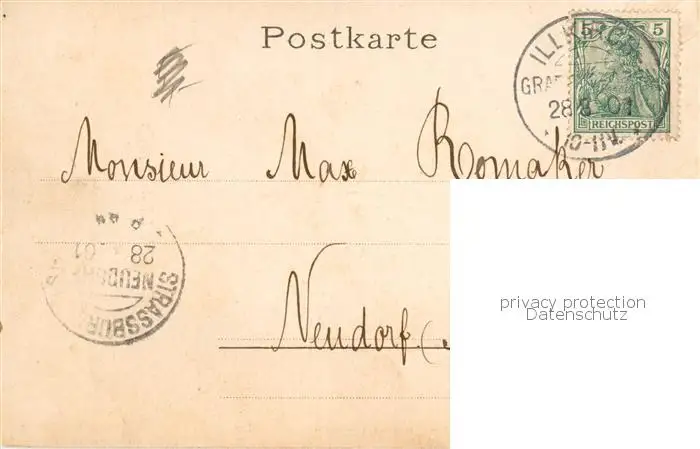 Postkarte
5 5
REICHSPOST
ILLKIRCH
GRAF
28 8 01
10-11V.
Monsieur Max Romaker
28 01
NEUDORF
STRASSBURG
Neudorf (.
privacy protection
Datenschutz